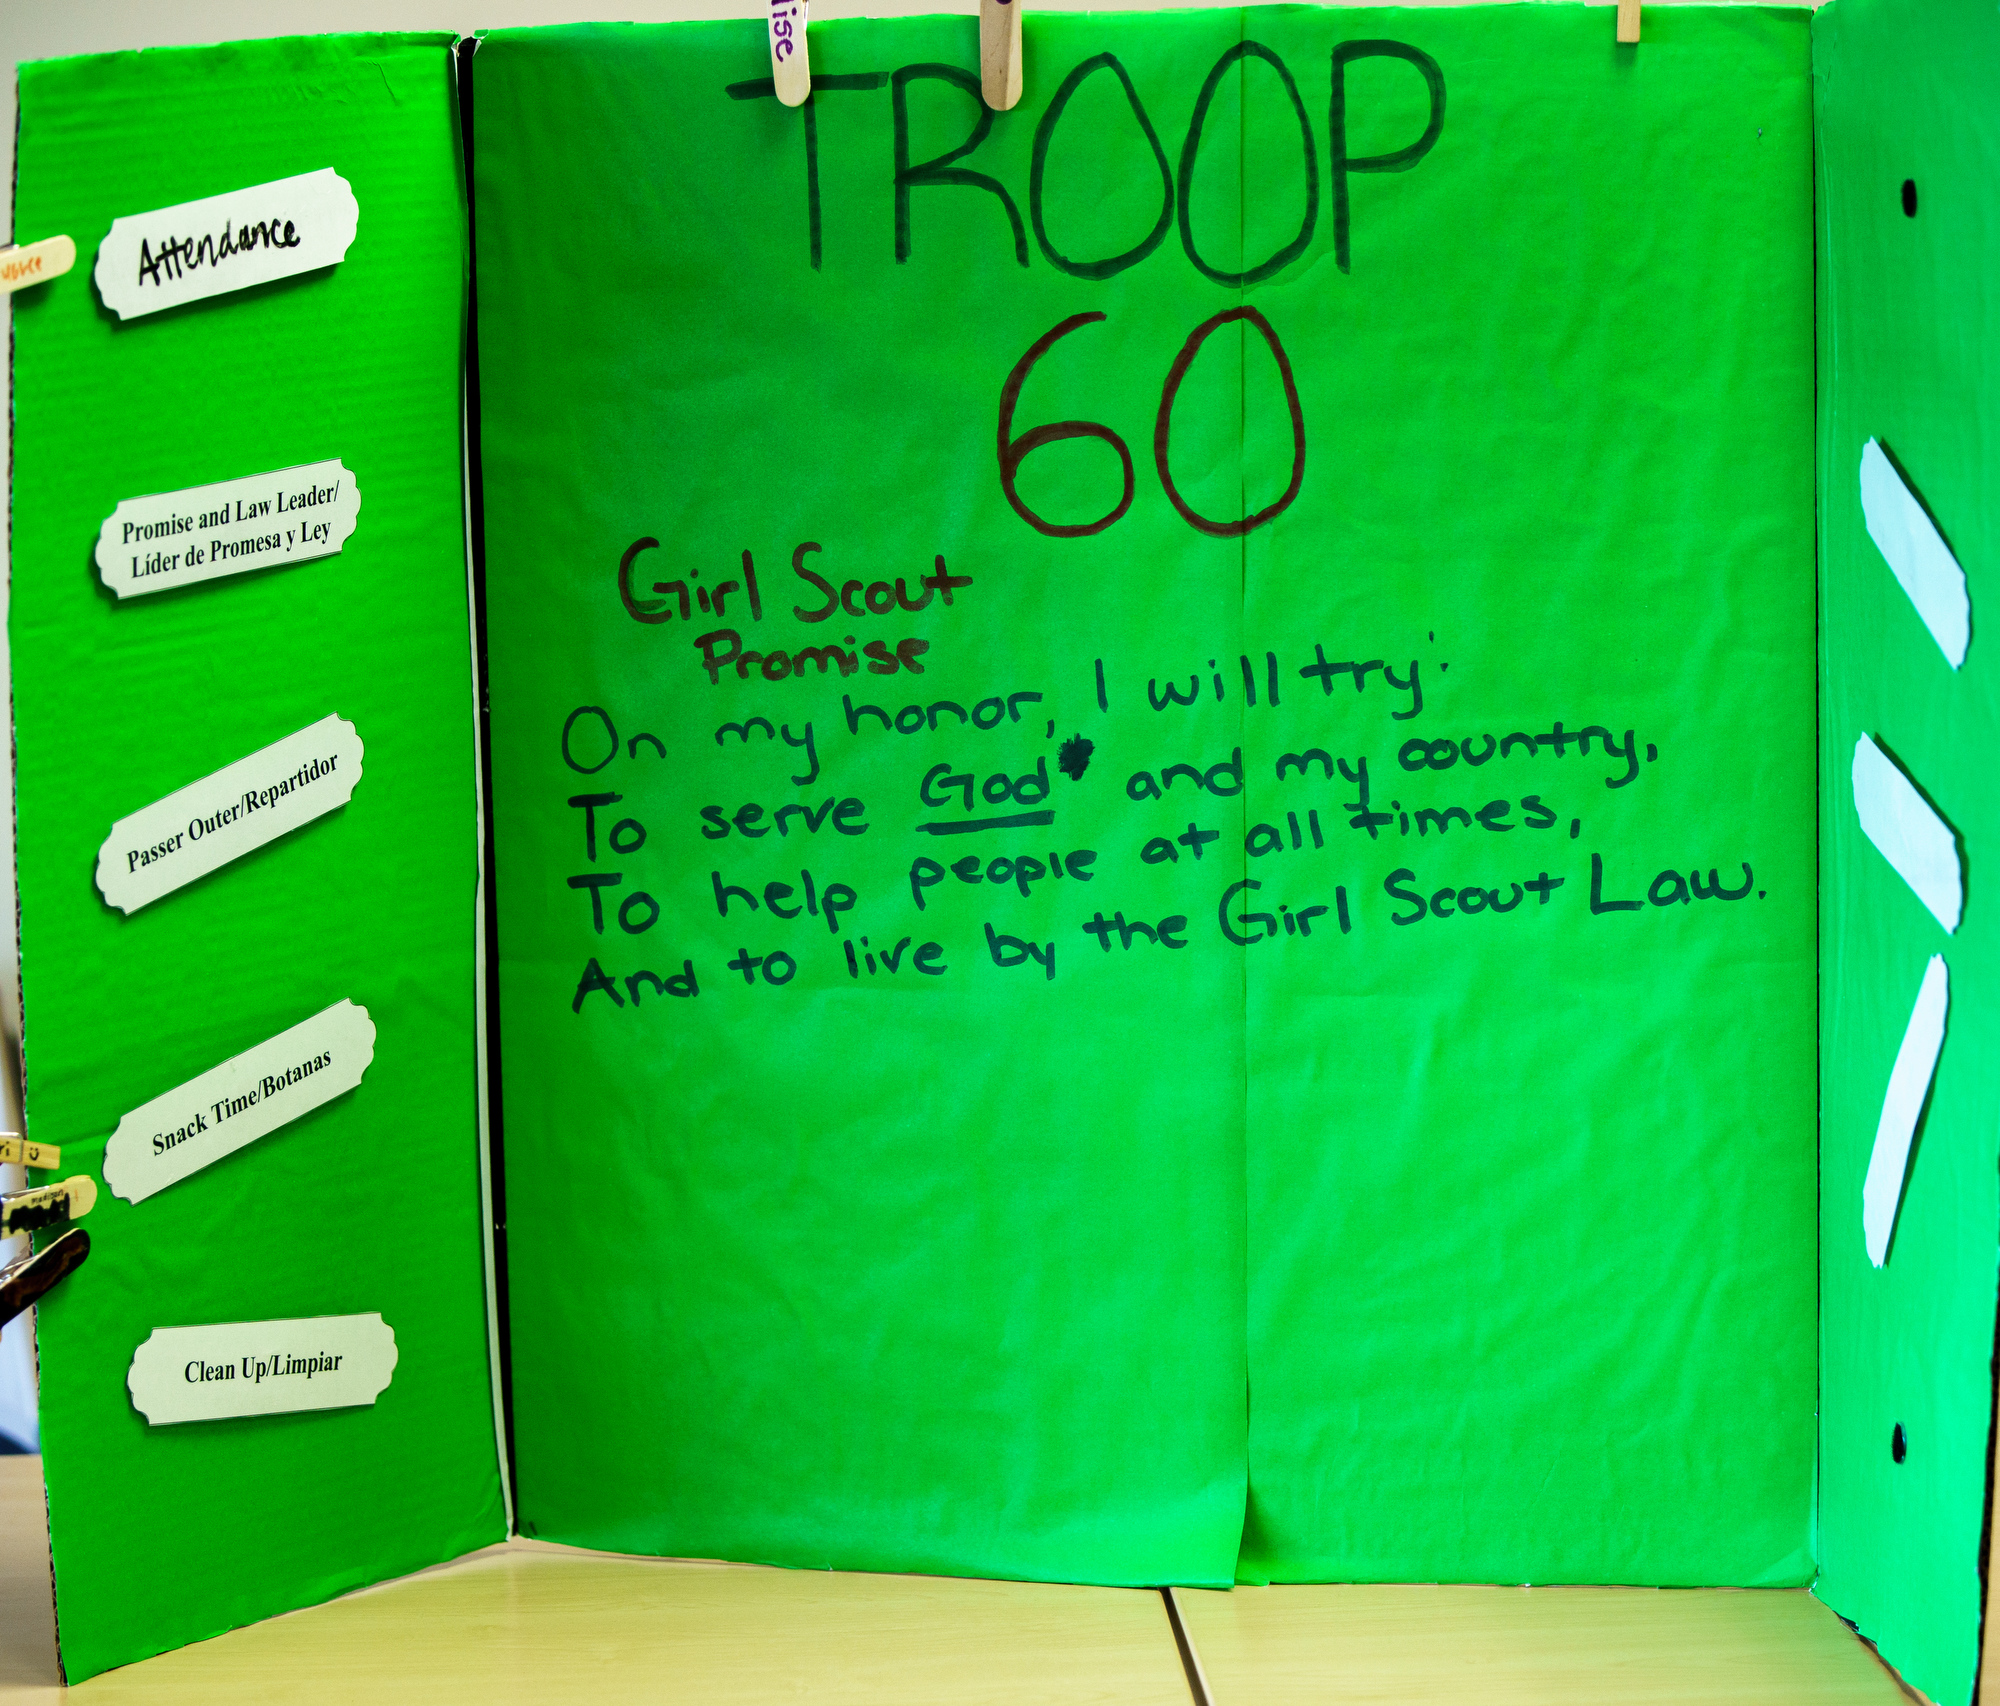 TROOP
60
Girl Scout
Promise
On my honor, I will try:
To serve God* and my country,
To help people at all times,
And to live by the Girl Scout Law.
Attendance
Promise and Law Leader/
Líder de Promesa y Ley
Passer Outer/Repartidor
Snack Time/Botanas
Clean Up/Limpiar